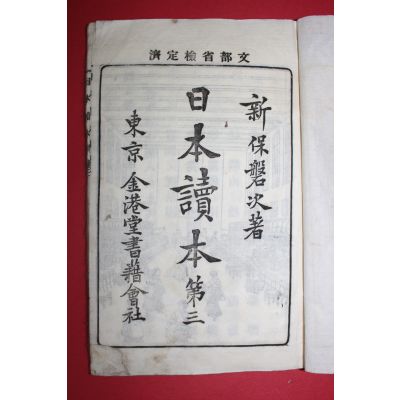 文部省檢定濟
新保磐次著
日本讀本 第三
東京 金港堂書籍會社